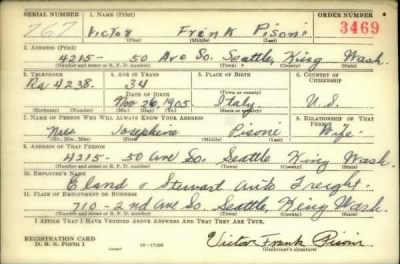 SERIAL NUMBER 1. NAME (Print) ORDER NUMBER
767 Victor Frank Pisoni 3469
(First) (Middle) (Last)
2. ADDRESS (Print)
4215- 50 Ave So. Seattle, King Wash.
(Number and street or R. F. D. number) (Town) (County) (State)
3. TELEPHONE 4. AGE IN YEARS 5. PLACE OF BIRTH 6. COUNTRY OF CITIZENSHIP
Ra 4238. 34
DATE OF BIRTH (Town or county)
Nov 26, 1905 Italy U.S.
(Exchange) (Number) (Mo.) (Day) (Yr.) (State or country)
7. NAME OF PERSON WHO WILL ALWAYS KNOW YOUR ADDRESS 8. RELATIONSHIP OF THAT PERSON
Mrs Josephine Pisoni Wife.
(Mr., Mrs., Miss) (First) (Middle) (Last)
9. ADDRESS OF THAT PERSON
4215 - 50 Ave So. Seattle King Wash.
(Number and street or R. F. D. number) (Town) (County) (State)
10. EMPLOYER'S NAME
Stewart Auto Freight.
11. PLACE OF EMPLOYMENT OR BUSINESS
710 - 2nd Ave So. Seattle, King Wash.
(Number and street or R. F. D. number) (Town) (County) (State)
I AFFIRM THAT I HAVE VERIFIED ABOVE ANSWERS AND THAT THEY ARE TRUE.
REGISTRATION CARD
D. S. S. Form 1 Victor Frank Pisoni
(Registrant's signature)